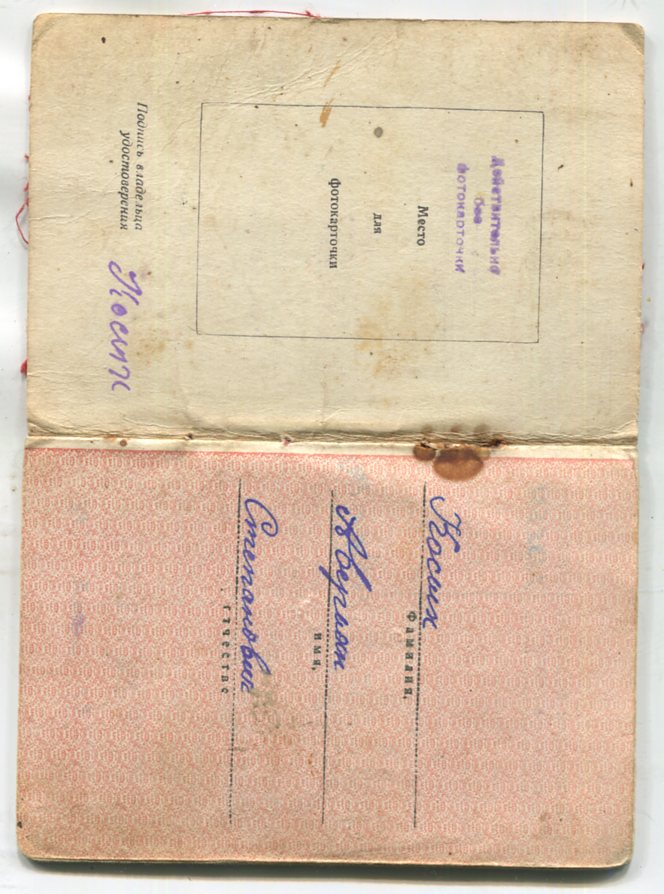 Действительно
без
фотокарточки
Место
для
фотокарточки
Подпись владельца
удостоверения
Косых
Косых
Фамилия,
Аверьян
имя,
Степанович
отчество